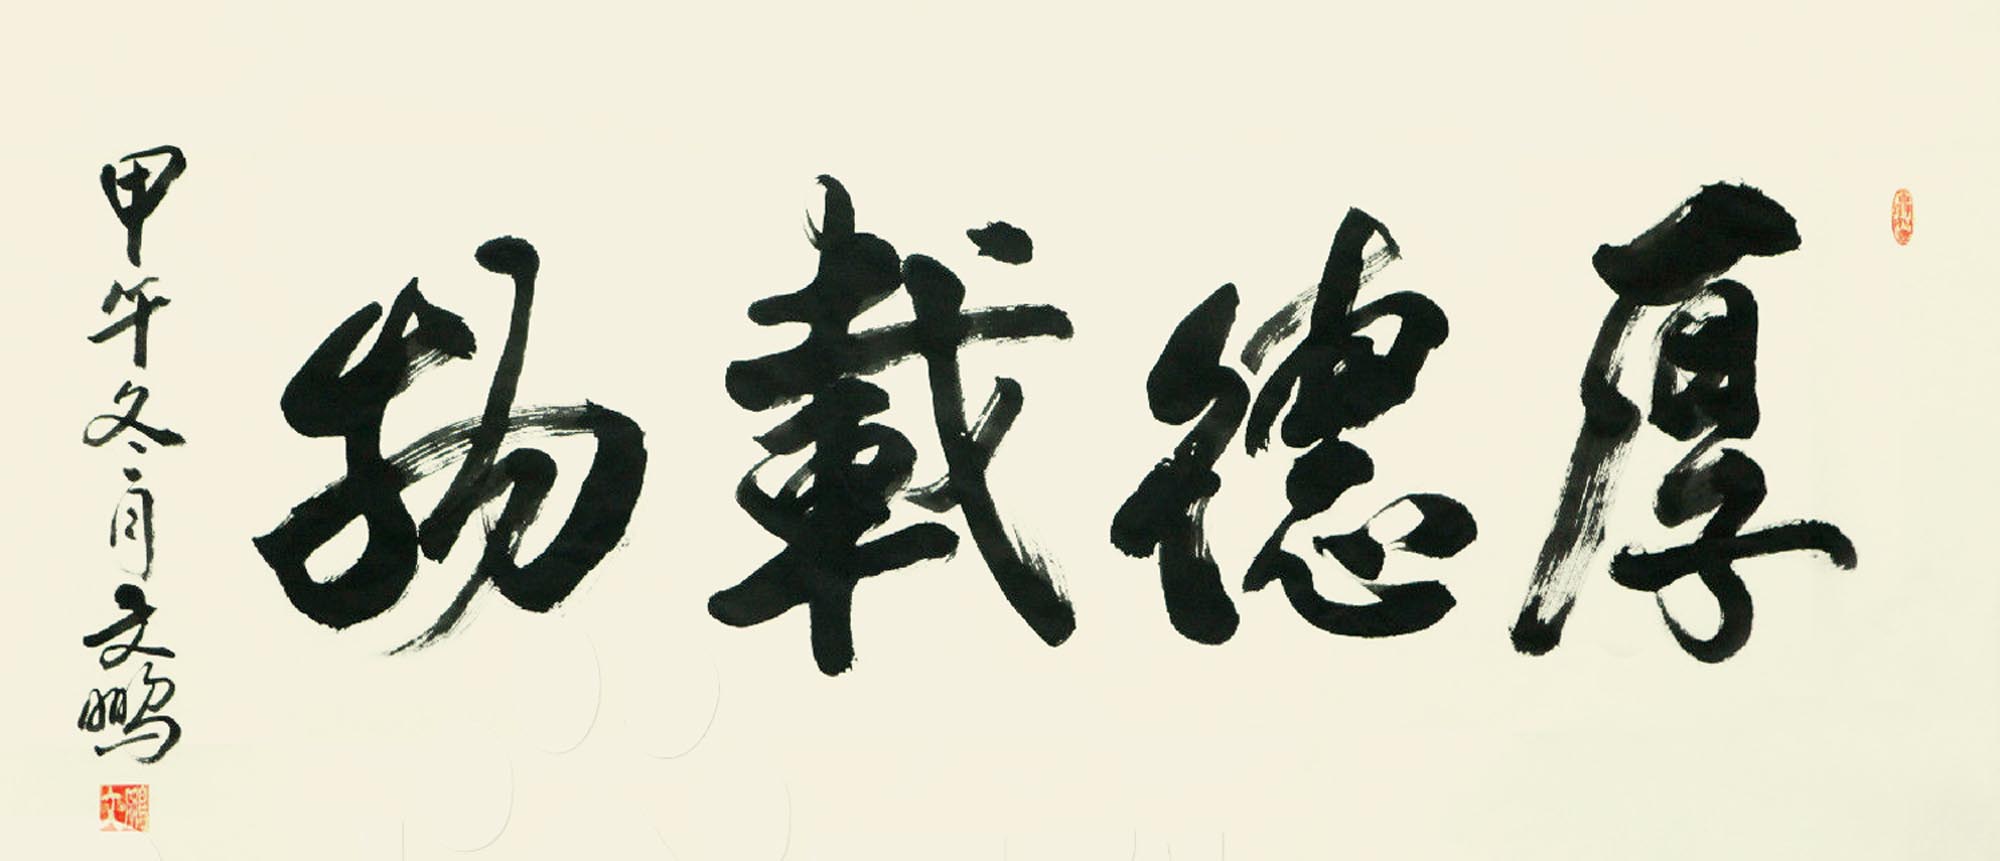 厚德載物
甲午冬月文鵬